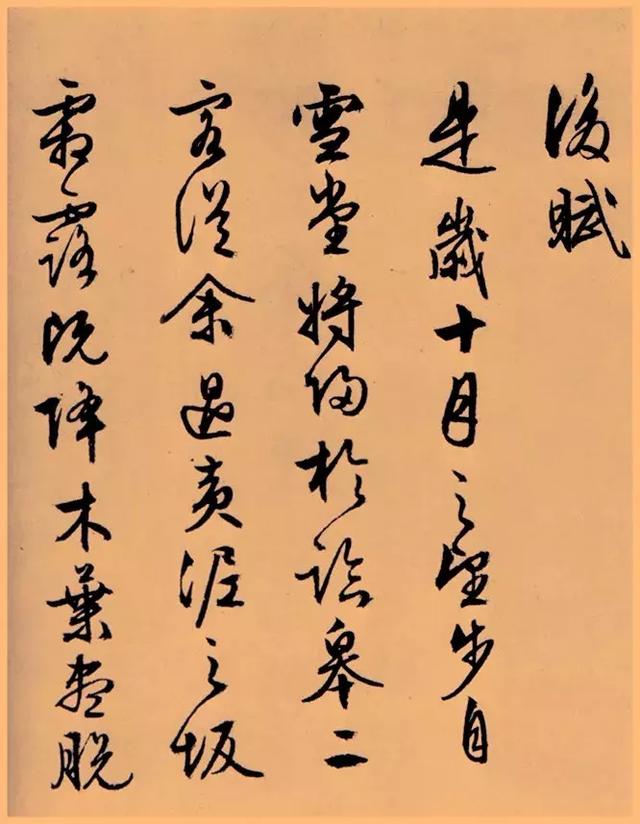 後賦
是歲十月之望步自
雪堂將歸於臨皋二
客從余過黃泥之坂
霜露既降木葉盡脫